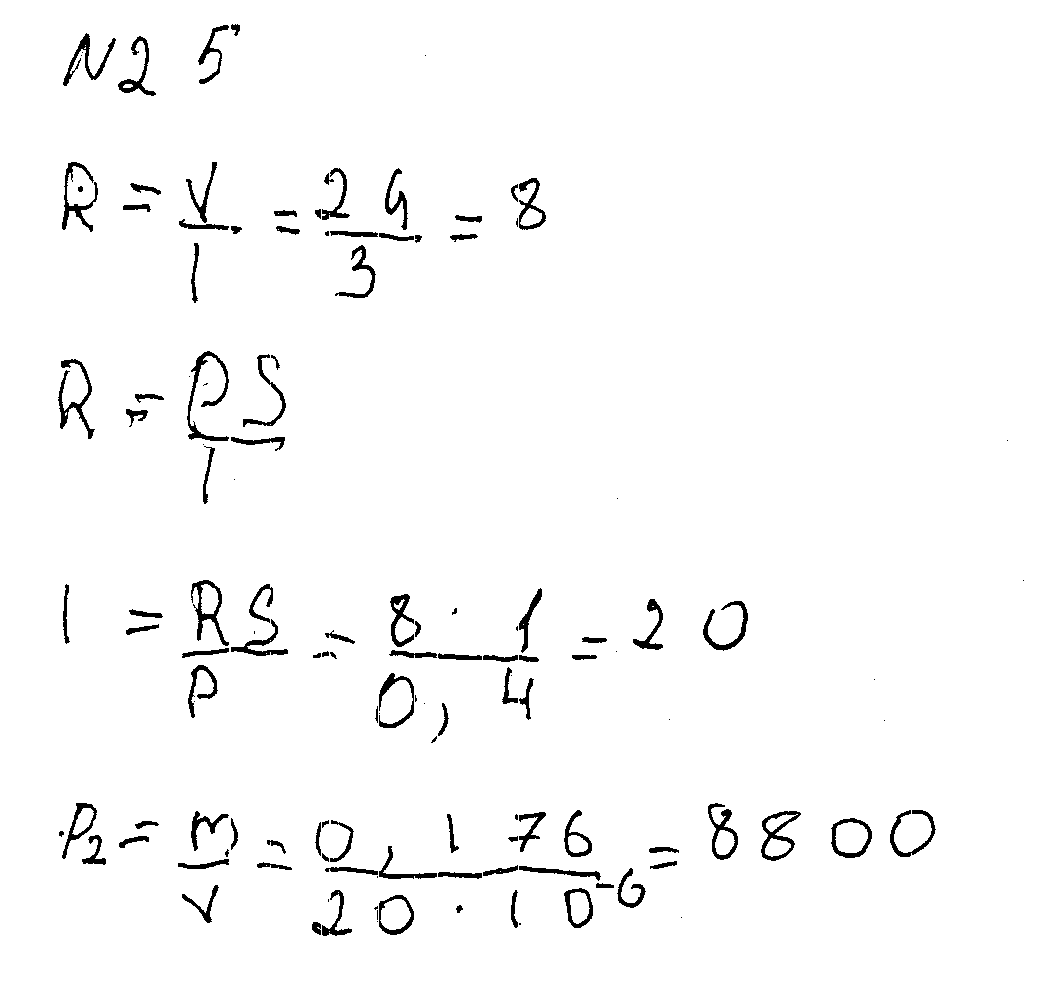 N2 5
R = V/I = 24/3 = 8
R = PS/l
l = RS/P = 8 · 1/0,4 = 20
P₂ = m/V = 0,176/20 · 10⁻⁶ = 8800